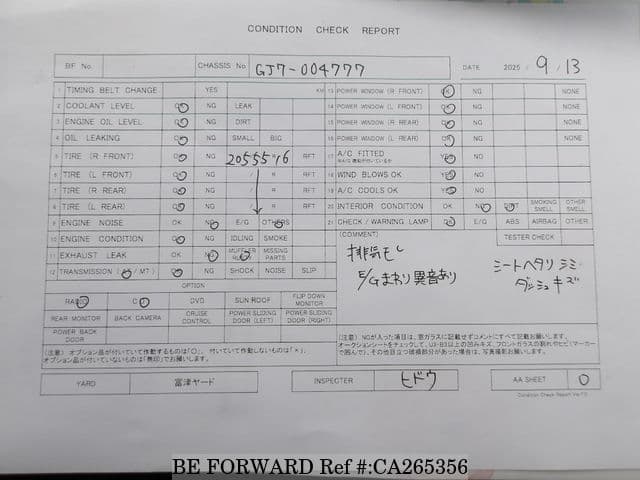 CONDITION CHECK REPORT
BF No. CHASSIS No GJ7-004777 DATE 2025 / 9 / 13
1 TIMING BELT CHANGE YES KM
2 COOLANT LEVEL OK NG LEAK
3 ENGINE OIL LEVEL OK NG DIRT
4 OIL LEAKING OK NG SMALL BIG
5 TIRE (R FRONT) OK NG 205 55 16 RFT
6 TIRE (L FRONT) OK NG / R RFT
7 TIRE (R REAR) OK NG / R RFT
8 TIRE (L REAR) OK NG / R RFT
9 ENGINE NOISE OK NG E/G OTHERS
10 ENGINE CONDITION OK NG IDLING SMOKE
11 EXHAUST LEAK OK NG MUFFLER RUST MISSING PARTS
12 TRANSMISSION (AT / MT) OK NG SHOCK NOISE SLIP
13 POWER WINDOW (R FRONT) OK NG NONE
14 POWER WINDOW (L FRONT) OK NG NONE
15 POWER WINDOW (R REAR) OK NG NONE
16 POWER WINDOW (L REAR) OK NG NONE
17 A/C FITTED YES NO
18 WIND BLOWS OK YES NO
19 A/C COOLS OK YES NO
20 INTERIOR CONDITION OK NG DIRT SMOKING SMELL OTHER SMELL
21 CHECK / WARNING LAMP OK E/G ABS AIRBAG OTHER
(COMMENT) TESTER CHECK
排気モレ
E/Gまわり異音あり
シートヘタリ シミ
ダッシュキズ
OPTION
RADIO CD DVD SUN ROOF FLIP DOWN MONITOR
REAR MONITOR BACK CAMERA CRUISE CONTROL POWER SLIDING DOOR (LEFT) POWER SLIDING DOOR (RIGHT)
POWER BACK DOOR
(注意) オプション品が付いていて作動するものは「○」、付いていて作動しないものは「×」、
オプション品が付いていないものは「無印」でお願いします。
(注意) NGが入った項目は、窓ガラスに記載せずコメントにすべて記載お願いします。
オークションシートをチェックして、UX-B3以上の凹みキズ、フロントガラスの割れやヒビ(マーカー
で囲んで)、その他目立つ破損部分があった場合は、写真撮影お願いします。
YARD 富津ヤード INSPECTER ヒドウ AA SHEET 0
Condition Check Report Ver.7.0
BE FORWARD Ref #:CA265356